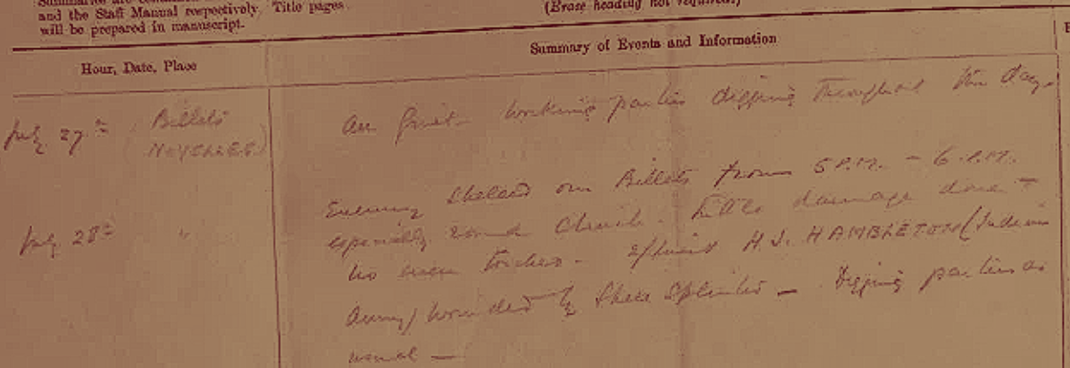 and the Staff Manual respectively. Title pages
will be prepared in manuscript.
(Erase heading not required.)
Hour, Date, Place
Summary of Events and Information
July 27th Billets NOYELLES
All quiet - working parties digging throughout the day.
July 28th "
Enemy shelled our Billets from 5 P.M. - 6 P.M.
especially round Church. Little damage done &
no men touched - H.J. HAMBLETON (Indian
Army) wounded by shell splinter - Digging parties as
usual -